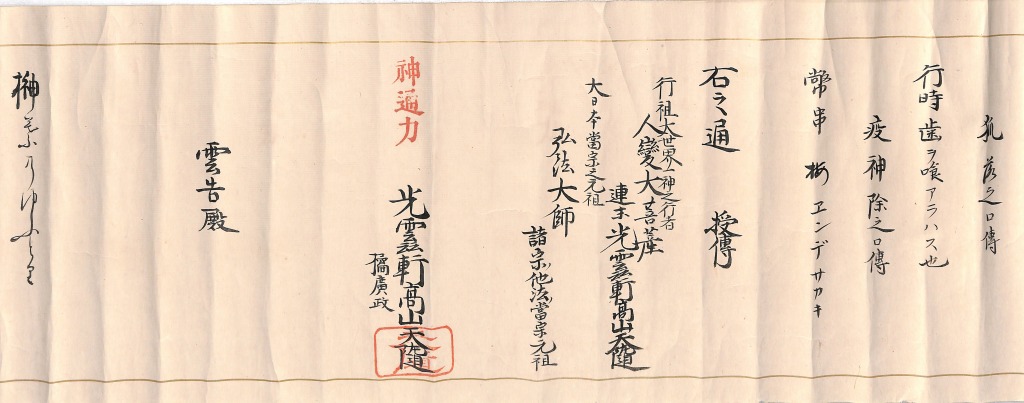 狐落之口傳
行時歯ヲ喰アラハス也
疫神除之口傳
幣串 梅 ヱンデ サカキ
右之通 授傳
行祖大世界一神之行者
人變大菩薩
連末光雲軒高山天隨
大日本當宗之元祖
弘法大師
諸宗他法當宗元祖
神通力
光雲軒高山天隨
橘廣政
雲告殿